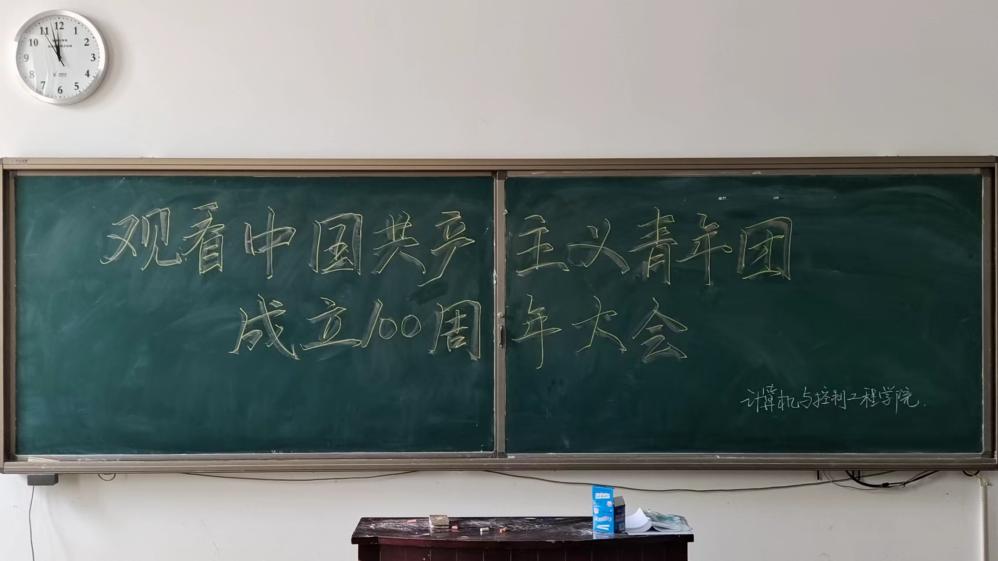 观看中国共产主义青年团
成立100周年大会
计算机与控制工程学院.
12
1
2
3
4
5
6
7
8
9
10
11